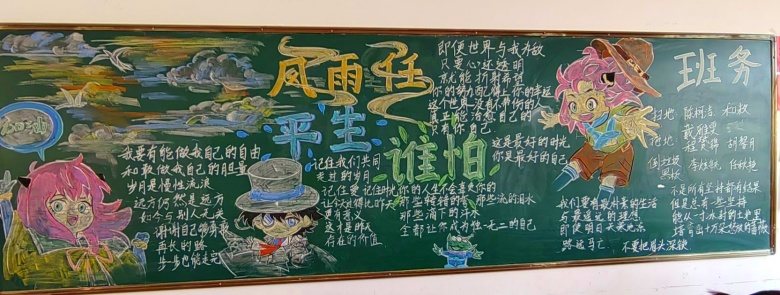 风雨任
平生
谁怕
我要有能做我自己的自由
和敢做我自己的胆量
岁月是慢性流浪
远方仍然是远方
如今与别人无关
谢谢自己够勇敢
再长的路
一步步也能走完
记住我们共同
走过的岁月
记住爱 记住时光
让今天比得上昨天
更有意义
这才是昨天
存在的价值
即使世界与我为敌
只要心还透明
就能折射希望
你的努力配得上你的幸运
这个世界没有平价的人
真正能治愈自己的
只有你自己
这是最好的时光
你是最好的自己
你的人生不会辜负你的
那些转错的弯 那些流的泪水
那些滴下的汗水
全都让你成为独一无二的自己
我们要有最朴素的生活
与最遥远的理想
即使明日天寒地冻
路远马亡
不要把眉头深锁
班务
扫地
拖地
倒垃圾
黑板
不是所有坚持都有结果
但是总有一些坚持
能从一寸冰封的土地里
培育出十万朵怒放的蔷薇